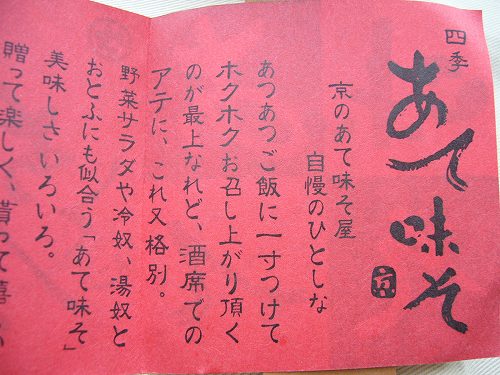 四季
あて味そ
京のあて味そ屋
自慢のひとしな
あつあつご飯に一寸つけて
ホクホクお召し上がり頂く
のが最上なれど、酒席での
アテに、これ又格別。
野菜サラダや冷奴、湯奴と
おとふにも似合う「あて味そ」
美味しさいろいろ。
贈って楽しく、貰って喜